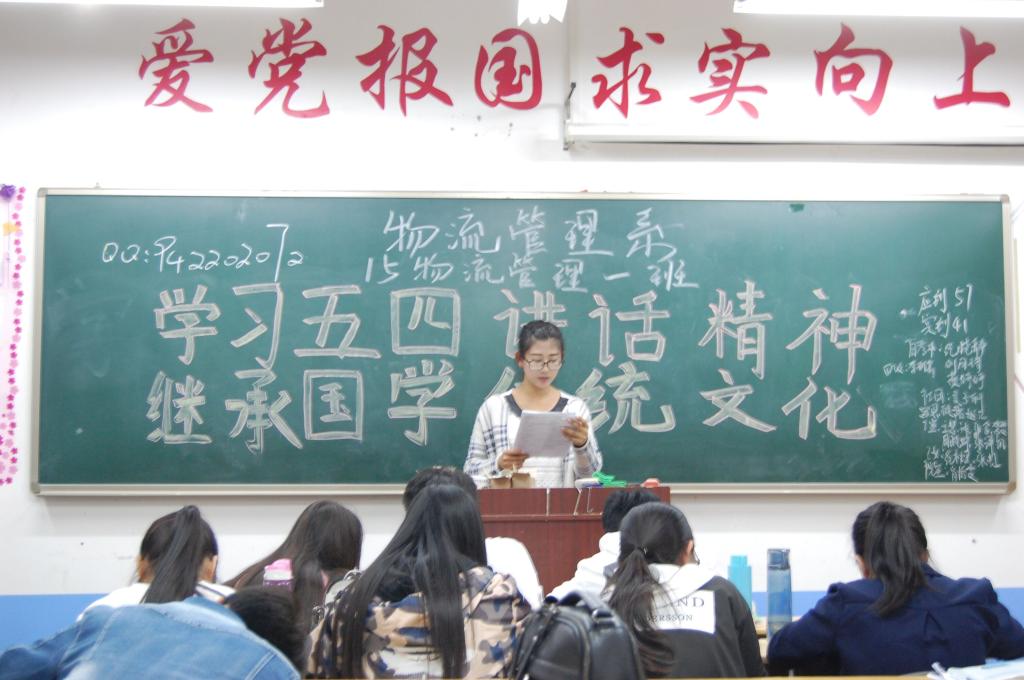 爱党报国 求实向上
物流管理系
QQ:942202072
15物流管理一班
学习五四讲话精神
继承国学传统文化
应到 51
实到 41
AND
DERSSON